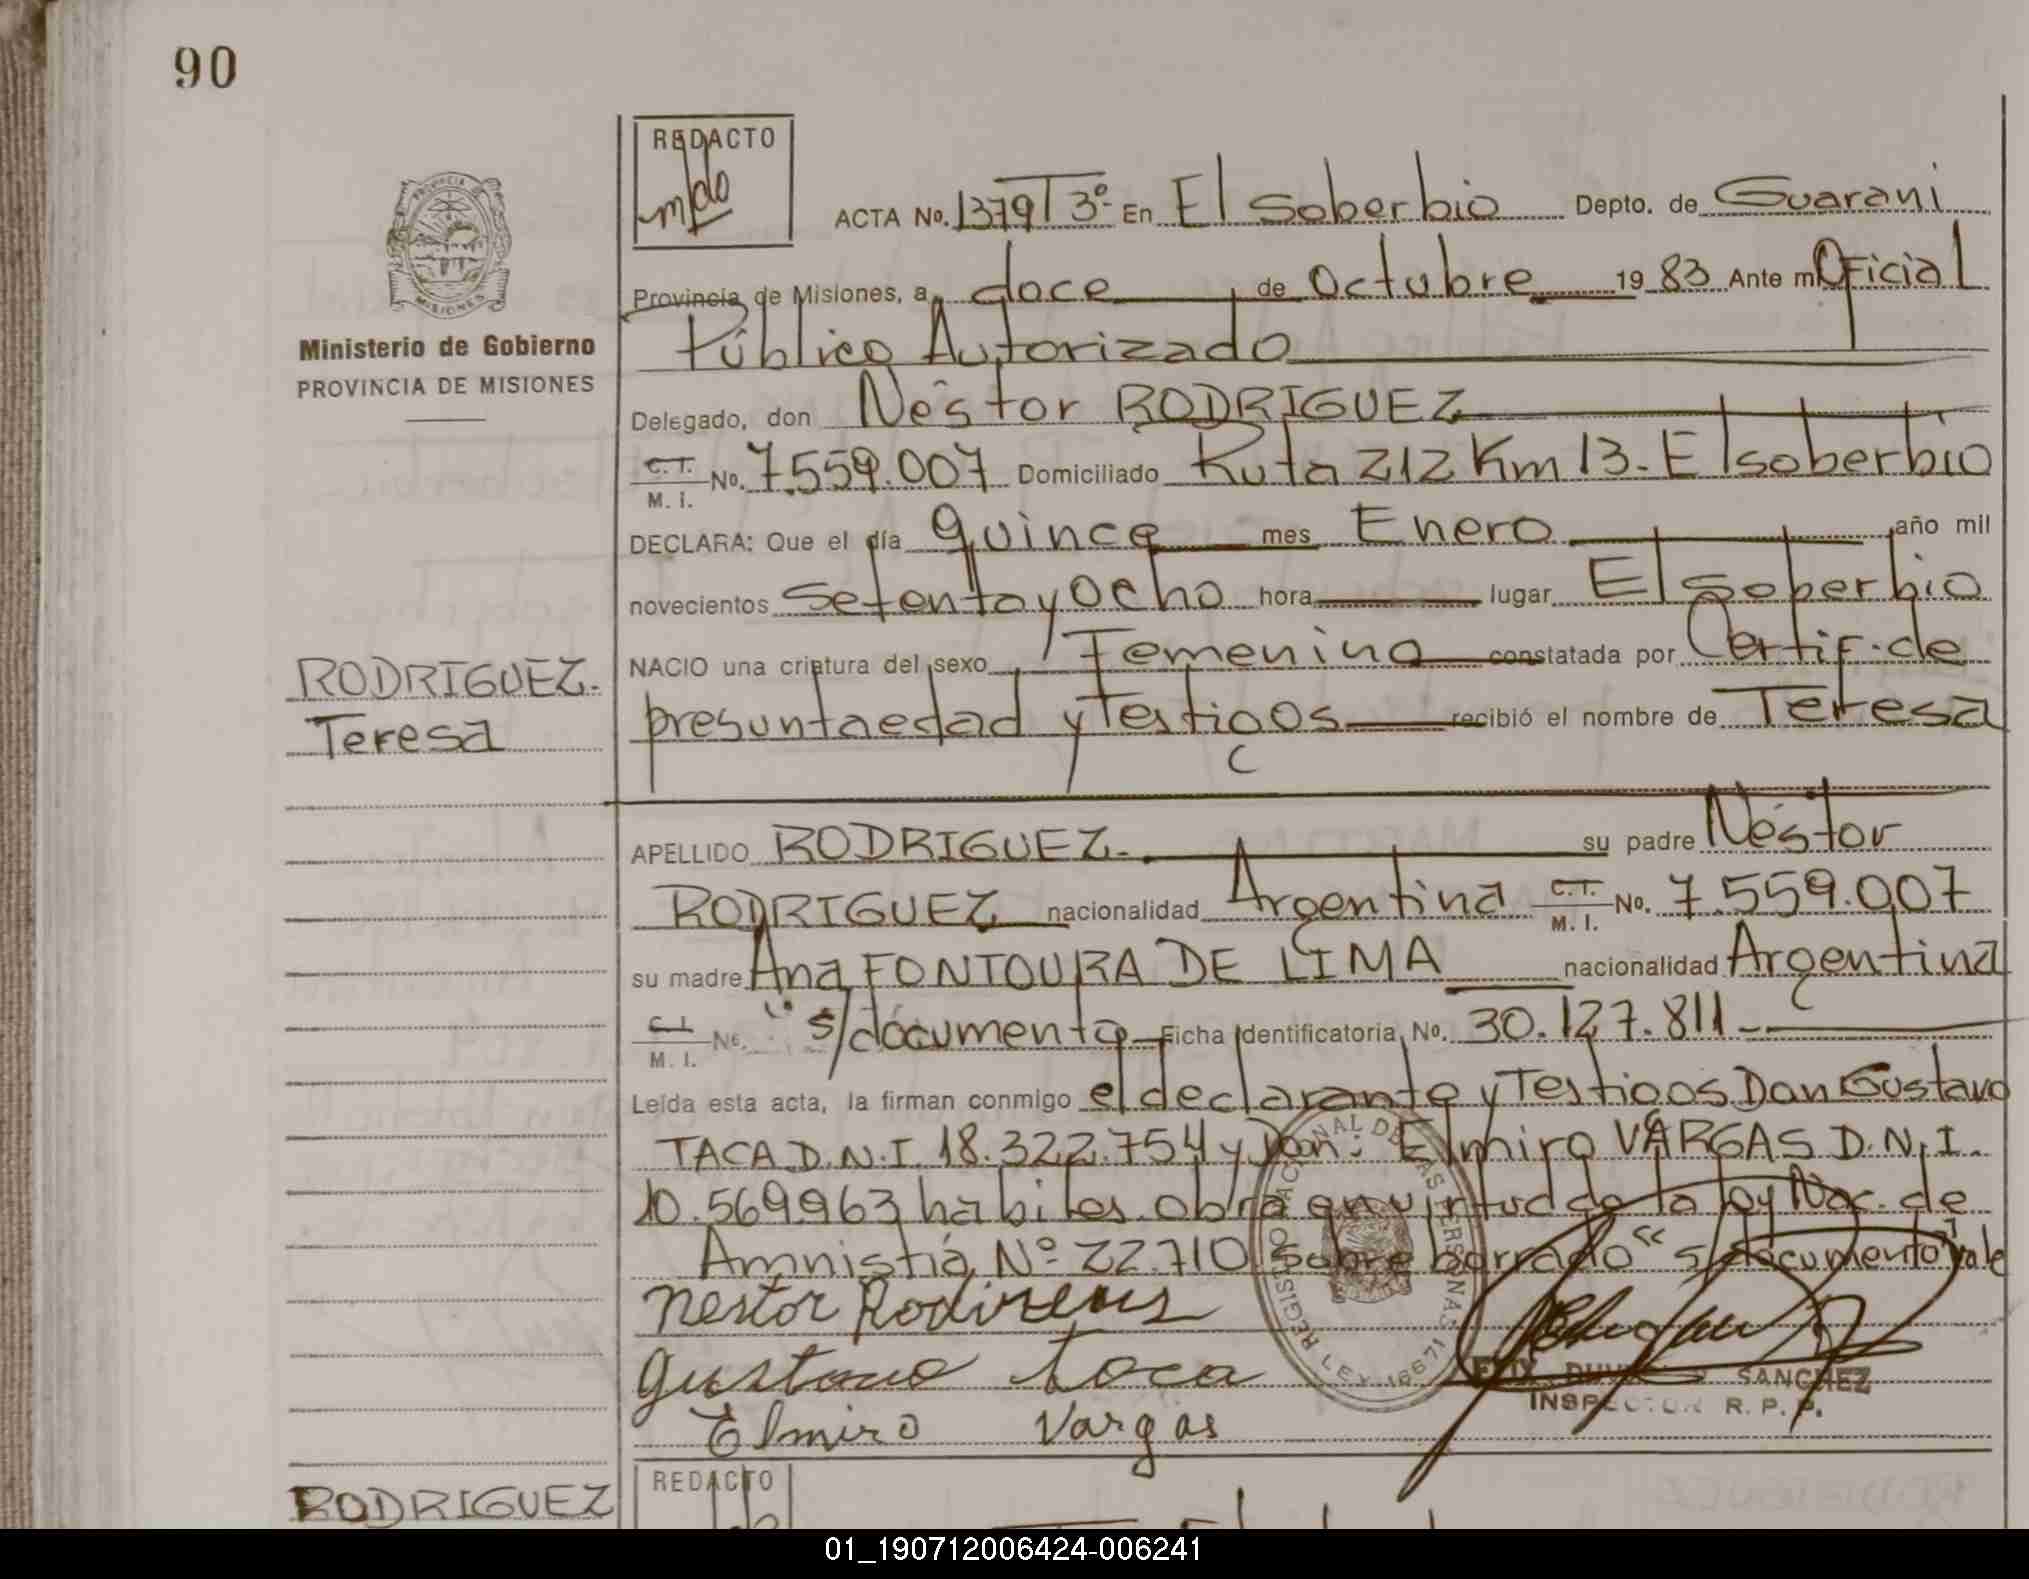 90
REDACTO
mdo
ACTA No. 1379 T 3º En El Soberbio Depto. de Guarani
Provincia de Misiones, a doce de Octubre 19 83 Ante mi Oficial
Público Autorizado
Ministerio de Gobierno
PROVINCIA DE MISIONES
Delegado, don Néstor RODRIGUEZ
C.T. M. I. No. 7.559.007 Domiciliado Ruta 212 Km 13. El soberbio
DECLARA: Que el día quince mes Enero año mil
novecientos setenta y Ocho hora lugar El soberbio
NACIO una criatura del sexo Femenino constatada por Certif. de
RODRIGUEZ.
Teresa
presunta edad y Testigos recibió el nombre de Teresa
APELLIDO RODRIGUEZ. su padre Néstor
RODRIGUEZ nacionalidad Argentina C.T. M. I. No. 7.559.007
su madre Ana FONTOURA DE LIMA nacionalidad Argentina
C.I. M. I. No. "s/documento Ficha Identificatoria, No. 30.127.811.-
Leída esta acta, la firman conmigo el declarante y Testigos Don Gustavo
TACA D.N.I. 18.322.754 y Don: Elmiro VARGAS D.N.I.
10.569.963 habiles. obra en virtud de la ley Nac. de
Amnistia Nº 22.710 sobre borrado "s/documento" vale
Nestor
Gustavo Toca
Elmiro Vargas
SANCHEZ
INSPECTOR R. P. P.
LEY 18671
REDACTO
RODRIGUEZ
01_190712006424-006241